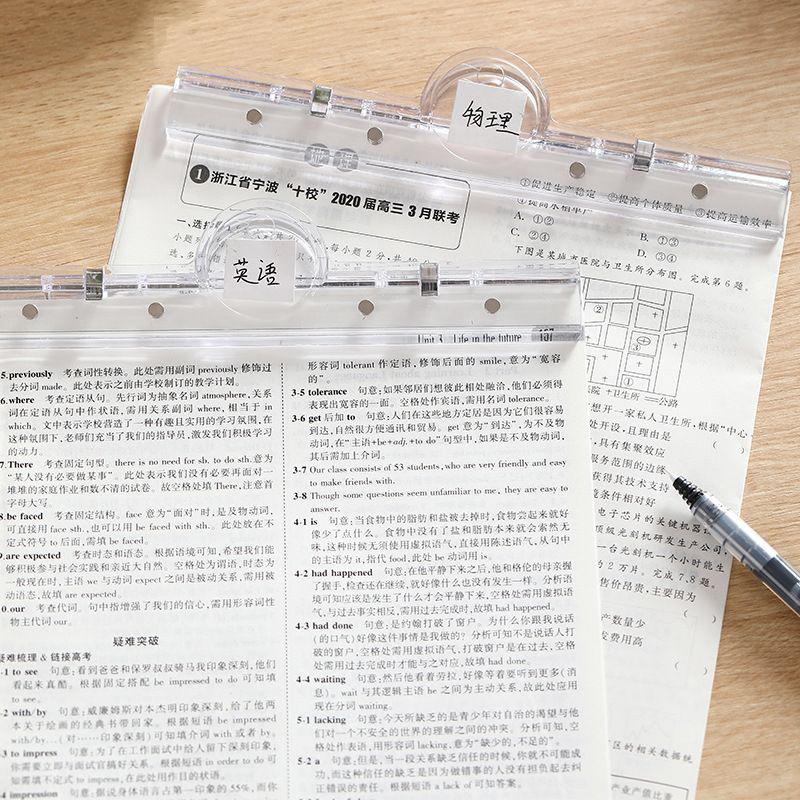 物理
地理
1 浙江省宁波“十校”2020届高三3月联考
①促进生产稳定 ②提高个体质量 ③提高运输效率
一、选择
A. ①②
B. ①③
C. ②④
D. ③④
下图是某城市医院与卫生所分布图。完成第6题。
+卫生所 ══公路
想开一家私人卫生所,根据“中心
处开设,且理由是
,具有集聚效应
服务范围的边缘
获得其技术支持
境条件相对好
电子芯片的关键机器
顶级光刻机研发生产公司,
一台光刻机一个小时能生
为2万片。完成7、8题。
售价昂贵,主要因为
产数量少
发费用高
区的相关数据统
产业产值比重
英语
Unit 3 Life in the future 157
5.previously 考查词性转换。此处需用副词 previously 修饰过
去分词 made。此处表示之前由学校制订的教学计划。
6.where 考查定语从句。先行词为抽象名词 atmosphere,关系
词在定语从句中作状语,需用关系副词 where,相当于 in
which。文中表示学校营造了一种有趣且实用的学习氛围,在
这种氛围下,老师们充当了我们的指导员,激发我们积极学习
的动力。
7.There 考查固定句型。there is no need for sb. to do sth.意为
“某人没有必要做某事”。此处表示我们没有必要再面对一
堆堆的家庭作业和数不清的试卷。故空格处填 There,注意首
字母大写。
8.be faced 考查固定结构。face 意为“面对”时,是及物动词,
可直接用 face sth.,也可以用 be faced with sth.。此处放在不
定式符号 to 后面,需填 be faced。
9.are expected 考查时态和语态。根据语境可知,希望我们能
够积极参与社会实践和亲近大自然。空格处为谓语,时态为
一般现在时,主语 we 与动词 expect 之间是被动关系,需用被
动语态,故填 are expected。
0.our 考查代词。句中指增强了我们的信心,需用形容词性
物主代词 our。
疑难突破
疑难梳理 & 链接高考
-1 to see 句意:看到爸爸和保罗叔叔骑马我印象深刻,他们
看起来真酷。根据固定搭配 be impressed to do 可知填
to see。
-2 with/by 句意:威廉姆斯对本杰明印象深刻,给了他两
本关于绘画的经典书带回家。根据短语 be impressed
with/by...(对……印象深刻)可知填介词 with 或者 by。
-3 to impress 句意:为了在工作面试中给人留下深刻印象,
你需要立即与面试官搞好关系。根据短语 in order to do 可
知需填不定式 to impress,在此处用作目的状语。
-4 impression 句意:据说身体语言占第一印象的55%,而你
形容词 tolerant 作定语,修饰后面的 smile,意为“宽容
的”。
3-5 tolerance 句意:如果邻居们想彼此相处融洽,他们必须得
表现出宽容的一面。空格处作宾语,需用名词 tolerance。
3-6 get后加to 句意:人们在这些地方定居是因为它们很容易
到达,自然很方便通讯和贸易。get 意为“到达”,为不及物
动词,在“主语+be+adj.+to do”句型中,如果是不及物动词,
其后需加上介词。
3-7 Our class consists of 53 students, who are very friendly and easy
to make friends with.
3-8 Though some questions seem unfamiliar to me, they are easy to
answer.
4-1 is 句意:当食物中的脂肪和盐被去掉时,食物尝起来就好
像少了点什么。食物中没有了盐和脂肪本来就会索然无
味,这种时候无须使用虚拟语气,直接用陈述语气,从句中
的主语为 it,指代 food,此处 be 动词用 is。
4-2 had happened 句意:在他平静下来之后,他和格伦的母亲握
了握手,检查还在继续,就好像什么也没有发生一样。分析语
境可知应该是发生了什么才会平静下来,空格处需用虚拟语
气,与过去事实相反,需用过去完成时,故填 had happened。
4-3 had done 句意:是约翰打破了窗户。为什么你跟我说话
(的口气)好像这件事情是我做的?分析可知不是说话人打
破的窗户,空格处需用虚拟语气,打破窗户是在过去,空格
处需用过去完成时才能与之对应,故填 had done。
4-4 waiting 句意:然后他看着劳拉,好像等着要听到更多(消
息)。wait 与其逻辑主语 he 之间为主动关系,故此处应用
现在分词 waiting。
5-1 lacking 句意:今天所缺乏的是青少年对自治的渴望与他
们对一个不安全的世界的理解之间的冲突。分析可知,空
格处作表语,用形容词 lacking,意为“缺少的,不足的”。
5-2 a 句意:但是,当一段关系缺乏信任的时候,你就不可能成
功,而这种信任的缺乏是因为做错事的人没有担负起去纠
正错误的责任。根据短语 a lack of 可知答案。